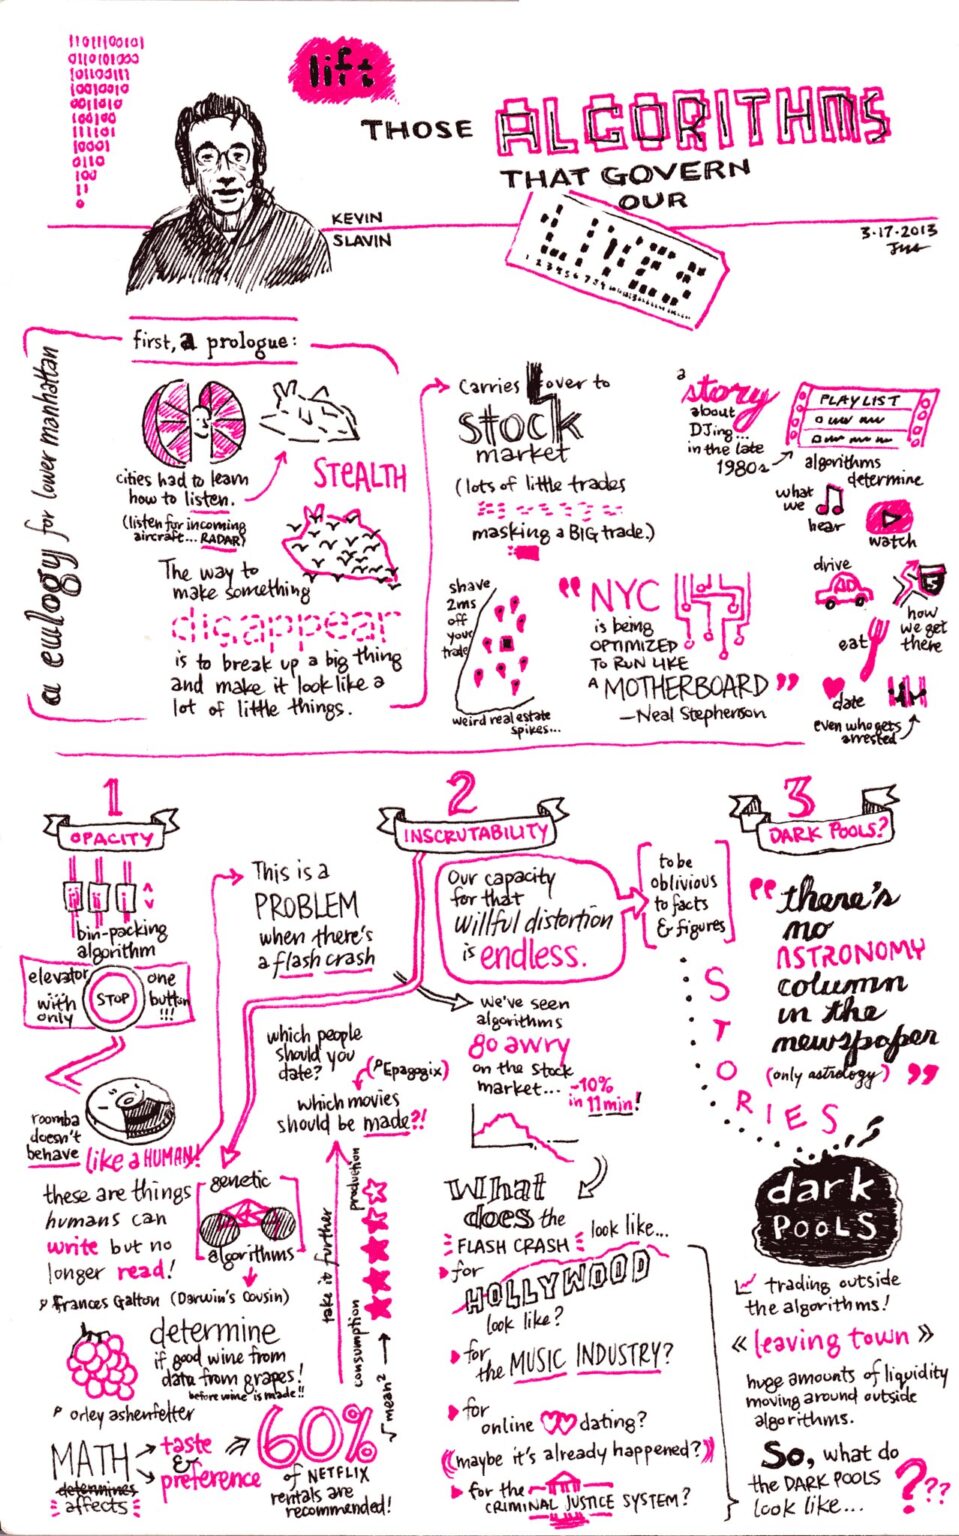 110111100101
lift
THOSE ALGORITHMS
THAT GOVERN
OUR
LIVES
KEVIN
SLAVIN
3-17-2013
a eulogy for lower manhattan
first, a prologue:
cities had to learn
how to listen.
(listen for incoming
aircraft... RADAR)
STEALTH
The way to
make something
disappear
is to break up a big thing
and make it look like a
lot of little things.
Carries over to
stock
market
(lots of little trades
masking a BIG trade.)
shave
2ms
off
your
trade
weird real estate
spikes...
"NYC
is being
OPTIMIZED
TO RUN LIKE
A MOTHERBOARD"
—Neal Stephenson
a
story
about
DJing...
in the late
1980s
PLAYLIST
algorithms
determine
what
we
hear
watch
drive
5
how
we get
there
eat
date
even who gets
arrested
1
OPACITY
bin-packing
algorithm
elevator
with
only
STOP
one
button
!!!
roomba
doesn't
behave
like a HUMAN!
these are things
humans can
write but no
longer read!
This is a
PROBLEM
when there's
a flash crash
2
INSCRUTABILITY
Our capacity
for that
willful distortion
is endless.
to be
oblivious
to facts
& figures
which people
should you
date?
(Epagogix)
which movies
should be made?!
we've seen
algorithms
go awry
on the stock
market...
-10%
in 11min!
genetic
algorithms
Frances Galton (Darwin's Cousin)
determine
if good wine from
data from grapes!
before wine is made!!
orley ashenfelter
MATH
determines
affects
taste
&
preference
60%
of NETFLIX
rentals are
recommended!
take it further
consumption
production
√mean²
What
does the
FLASH CRASH look like...
for
HOLLYWOOD
look like?
for
the MUSIC INDUSTRY?
for
online dating?
(maybe it's already happened?)
for the
CRIMINAL JUSTICE SYSTEM?
3
DARK POOLS?
"there's
no
ASTRONOMY
column
in the
newspaper
(only astrology)"
STORIES
dark
POOLS
trading outside
the algorithms!
« leaving town »
huge amounts of liquidity
moving around outside
algorithms.
So, what do
the DARK POOLS
look like...
????